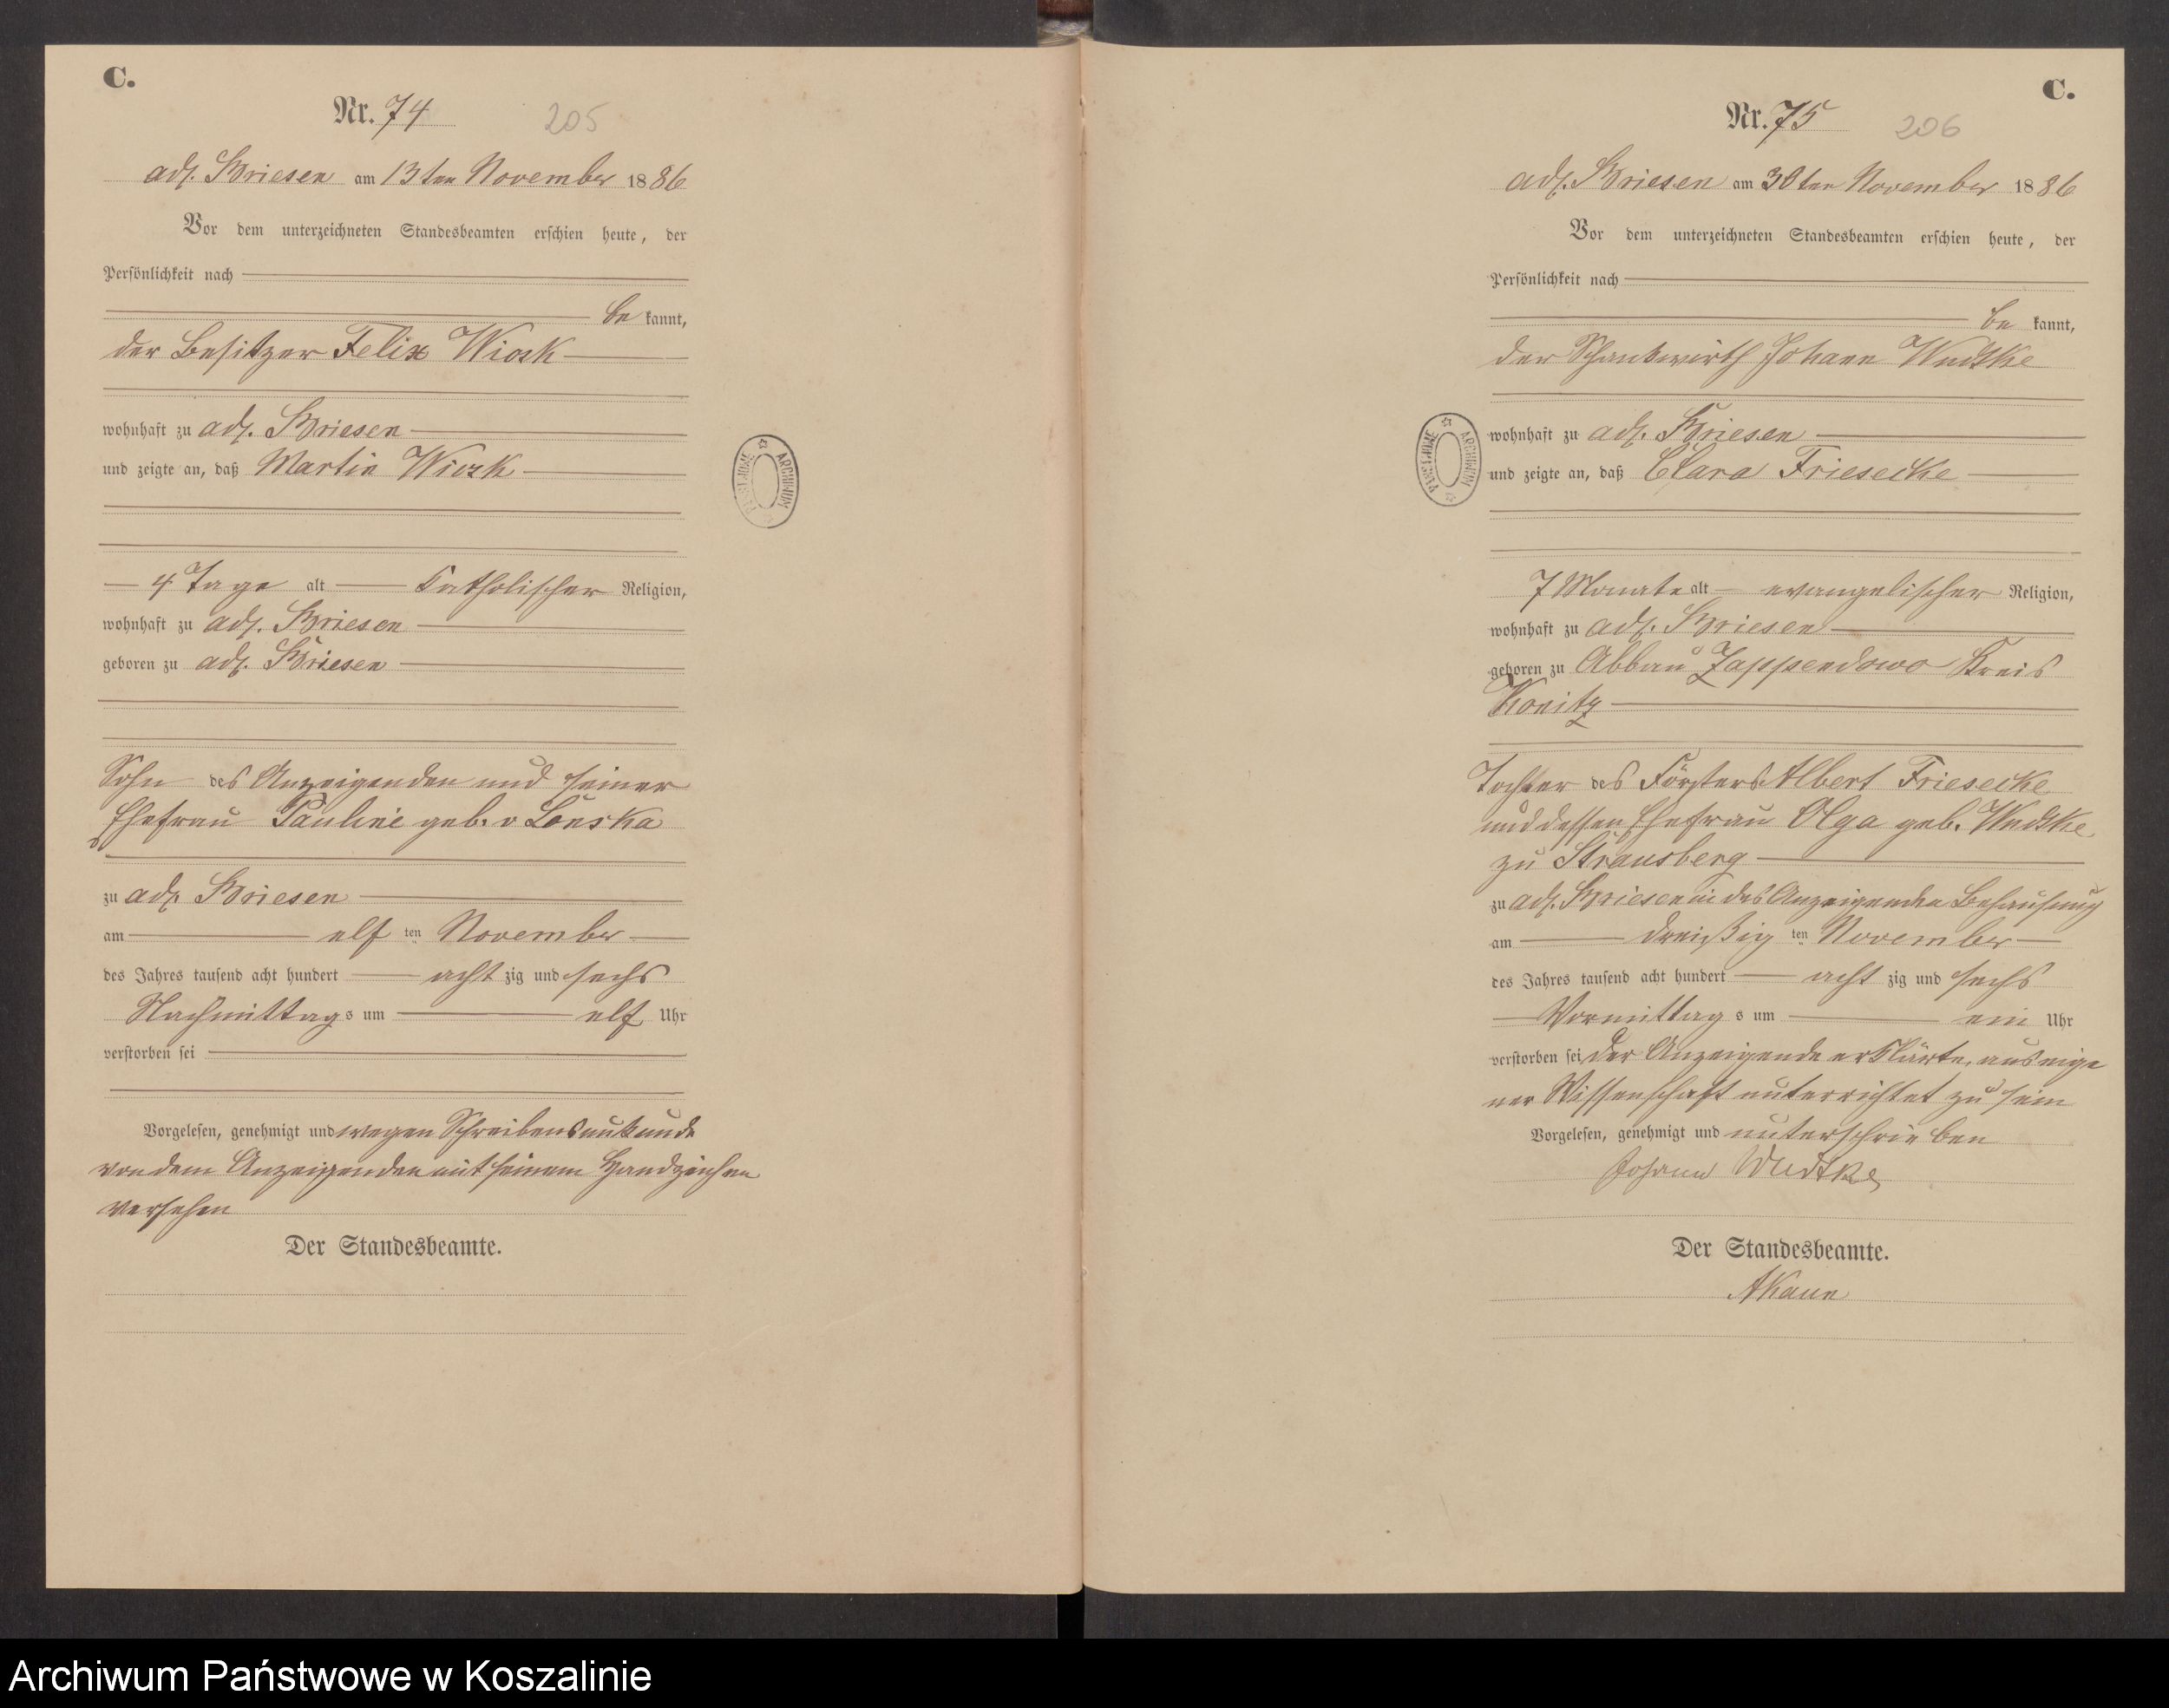 C.
Nr. 74
205
adl. Briesen am 13ten November 1886
Vor dem unterzeichneten Standesbeamten erschien heute, der
Persönlichkeit nach
be kannt,
der Besitzer Felix Wiosk
wohnhaft zu adl. Briesen
und zeigte an, daß Martin Wiosk
4 Tage alt katholischer Religion,
wohnhaft zu adl. Briesen
geboren zu adl. Briesen
Sohn des Anzeigenden und seiner
Ehefrau Pauline geb. v Lonska
zu adl. Briesen
am elf ten November
des Jahres tausend acht hundert acht zig und sechs
Nachmittags um elf Uhr
verstorben sei
Vorgelesen, genehmigt und wegen Schreibensunkunde
von dem Anzeigenden mit seinem Handzeichen
versehen
Der Standesbeamte.
PAŃSTWOWE ARCHIWUM
C.
Nr. 75
206
adl. Briesen am 30ten November 1886
Vor dem unterzeichneten Standesbeamten erschien heute, der
Persönlichkeit nach
be kannt,
der Schankwirth Johann Wudtke
wohnhaft zu adl. Briesen
und zeigte an, daß Clara Friesecke
7 Monate alt evangelischer Religion,
wohnhaft zu adl. Briesen
geboren zu Abbau Zappendowo Kreis
Konitz
Tochter des Försters Albert Friesecke
und dessen Ehefrau Olga geb. Wudtke
zu Strausberg
zu adl. Briesen in des Anzeigenden Behausung
am dreißig ten November
des Jahres tausend acht hundert acht zig und sechs
Vormittags um ein Uhr
verstorben sei der Anzeigende erklärte, aus eige
ner Wissenschaft unterrichtet zu sein
Vorgelesen, genehmigt und unterschrieben
Johann Wudtke
Der Standesbeamte.
PAŃSTWOWE ARCHIWUM
Archiwum Państwowe w Koszalinie